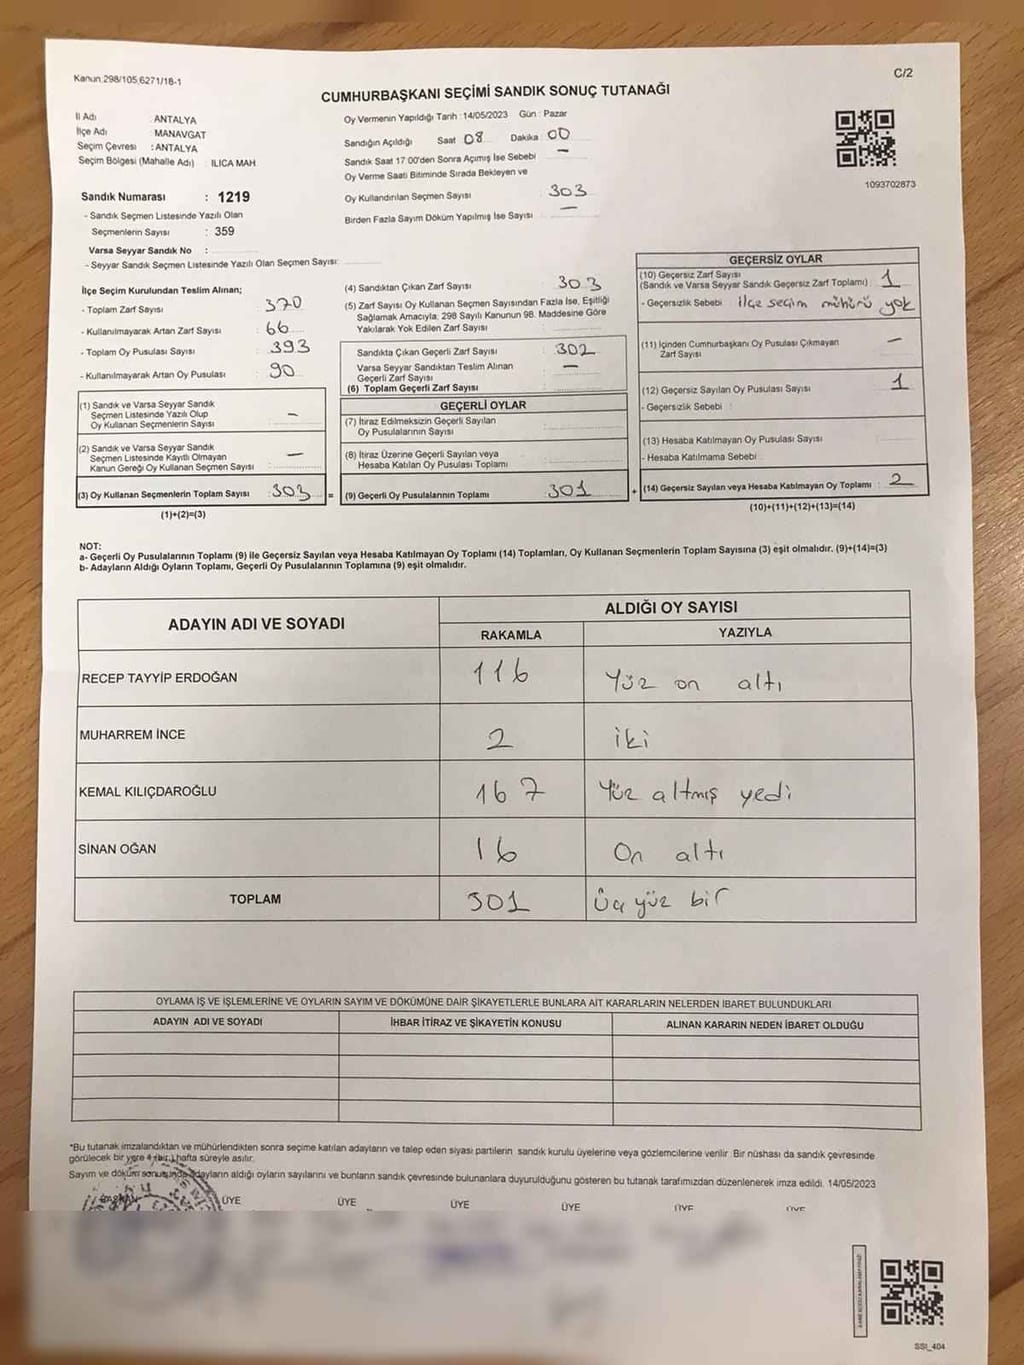 Kanun:298/105,6271/18-1
C/2
CUMHURBAŞKANI SEÇİMİ SANDIK SONUÇ TUTANAĞI
İl Adı : ANTALYA
İlçe Adı : MANAVGAT
Seçim Çevresi : ANTALYA
Seçim Bölgesi (Mahalle Adı) : ILICA MAH
Sandık Numarası : 1219
- Sandık Seçmen Listesinde Yazılı Olan
Seçmenlerin Sayısı : 359
Varsa Seyyar Sandık No :
- Seyyar Sandık Seçmen Listesinde Yazılı Olan Seçmen Sayısı:
Oy Vermenin Yapıldığı Tarih : 14/05/2023 Gün : Pazar
Sandığın Açıldığı Saat 08 Dakika 00
Sandık Saat 17 00'den Sonra Açımış İse Sebebi —
Oy Verme Saati Bitiminde Sırada Bekleyen ve
Oy Kullandırılan Seçmen Sayısı : 303
Birden Fazla Sayım Döküm Yapılmış İse Sayısı : —
1093702873
İlçe Seçim Kurulundan Teslim Alınan;
- Toplam Zarf Sayısı : 370
- Kullanılmayarak Artan Zarf Sayısı : 66
- Toplam Oy Pusulası Sayısı : 393
- Kullanılmayarak Artan Oy Pusulası : 90
(1) Sandık ve Varsa Seyyar Sandık
Seçmen Listesinde Yazılı Olup
Oy Kullanan Seçmenlerin Sayısı : —
(2) Sandık ve Varsa Seyyar Sandık
Seçmen Listesinde Kayıtlı Olmayan
Kanun Gereği Oy Kullanan Seçmen Sayısı : —
(3) Oy Kullanan Seçmenlerin Toplam Sayısı : 303 =
(1)+(2)=(3)
(4) Sandıktan Çıkan Zarf Sayısı : 303
(5) Zarf Sayısı Oy Kullanan Seçmen Sayısından Fazla İse, Eşitliği
Sağlamak Amacıyla, 298 Sayılı Kanunun 98. Maddesine Göre
Yakılarak Yok Edilen Zarf Sayısı :
Sandıkta Çıkan Geçerli Zarf Sayısı : 302
Varsa Seyyar Sandıktan Teslim Alınan
Geçerli Zarf Sayısı : —
(6) Toplam Geçerli Zarf Sayısı :
GEÇERLİ OYLAR
(7) İtiraz Edilmeksizin Geçerli Sayılan
Oy Pusulalarının Sayısı :
(8) İtiraz Üzerine Geçerli Sayılan veya
Hesaba Katılan Oy Pusulası Toplamı :
(9) Geçerli Oy Pusulalarının Toplamı : 301 +
GEÇERSİZ OYLAR
(10) Geçersiz Zarf Sayısı
(Sandık ve Varsa Seyyar Sandık Geçersiz Zarf Toplamı) : 1
- Geçersizlik Sebebi : İlçe seçim mühürü yok
(11) İçinden Cumhurbaşkanı Oy Pusulası Çıkmayan
Zarf Sayısı : —
(12) Geçersiz Sayılan Oy Pusulası Sayısı : 1
- Geçersizlik Sebebi :
(13) Hesaba Katılmayan Oy Pusulası Sayısı :
- Hesaba Katılmama Sebebi :
(14) Geçersiz Sayılan veya Hesaba Katılmayan Oy Toplamı : 2
(10)+(11)+(12)+(13)=(14)
NOT:
a- Geçerli Oy Pusulalarının Toplamı (9) ile Geçersiz Sayılan veya Hesaba Katılmayan Oy Toplamı (14) Toplamları, Oy Kullanan Seçmenlerin Toplam Sayısına (3) eşit olmalıdır. (9)+(14)=(3)
b- Adayların Aldığı Oyların Toplamı, Geçerli Oy Pusulalarının Toplamına (9) eşit olmalıdır.
ADAYIN ADI VE SOYADI ALDIĞI OY SAYISI
RAKAMLA YAZIYLA
RECEP TAYYİP ERDOĞAN 116 Yüz on altı
MUHARREM İNCE 2 iki
KEMAL KILIÇDAROĞLU 167 Yüz altmış yedi
SİNAN OĞAN 16 On altı
TOPLAM 301 Üç yüz bir
OYLAMA İŞ VE İŞLEMLERİNE VE OYLARIN SAYIM VE DÖKÜMÜNE DAİR ŞİKAYETLERLE BUNLARA AİT KARARLARIN NELERDEN İBARET BULUNDUKLARI
ADAYIN ADI VE SOYADI İHBAR İTİRAZ VE ŞİKAYETİN KONUSU ALINAN KARARIN NEDEN İBARET OLDUĞU
*Bu tutanak imzalandıktan ve mühürlendikten sonra seçime katılan adayların ve talep eden siyasi partilerin sandık kurulu üyelerine veya gözlemcilerine verilir. Bir nüshası da sandık çevresinde
görülecek bir yere 1 (bir) hafta süreyle asılır.
Sayım ve döküm sonucunda adayların aldığı oyların sayılarını ve bunların sandık çevresinde bulunanlara duyurulduğunu gösteren bu tutanak tarafımızdan düzenlenerek imza edildi. 14/05/2023
BAŞKAN ÜYE ÜYE ÜYE ÜYE ÜYE ÜYE
SSI_404